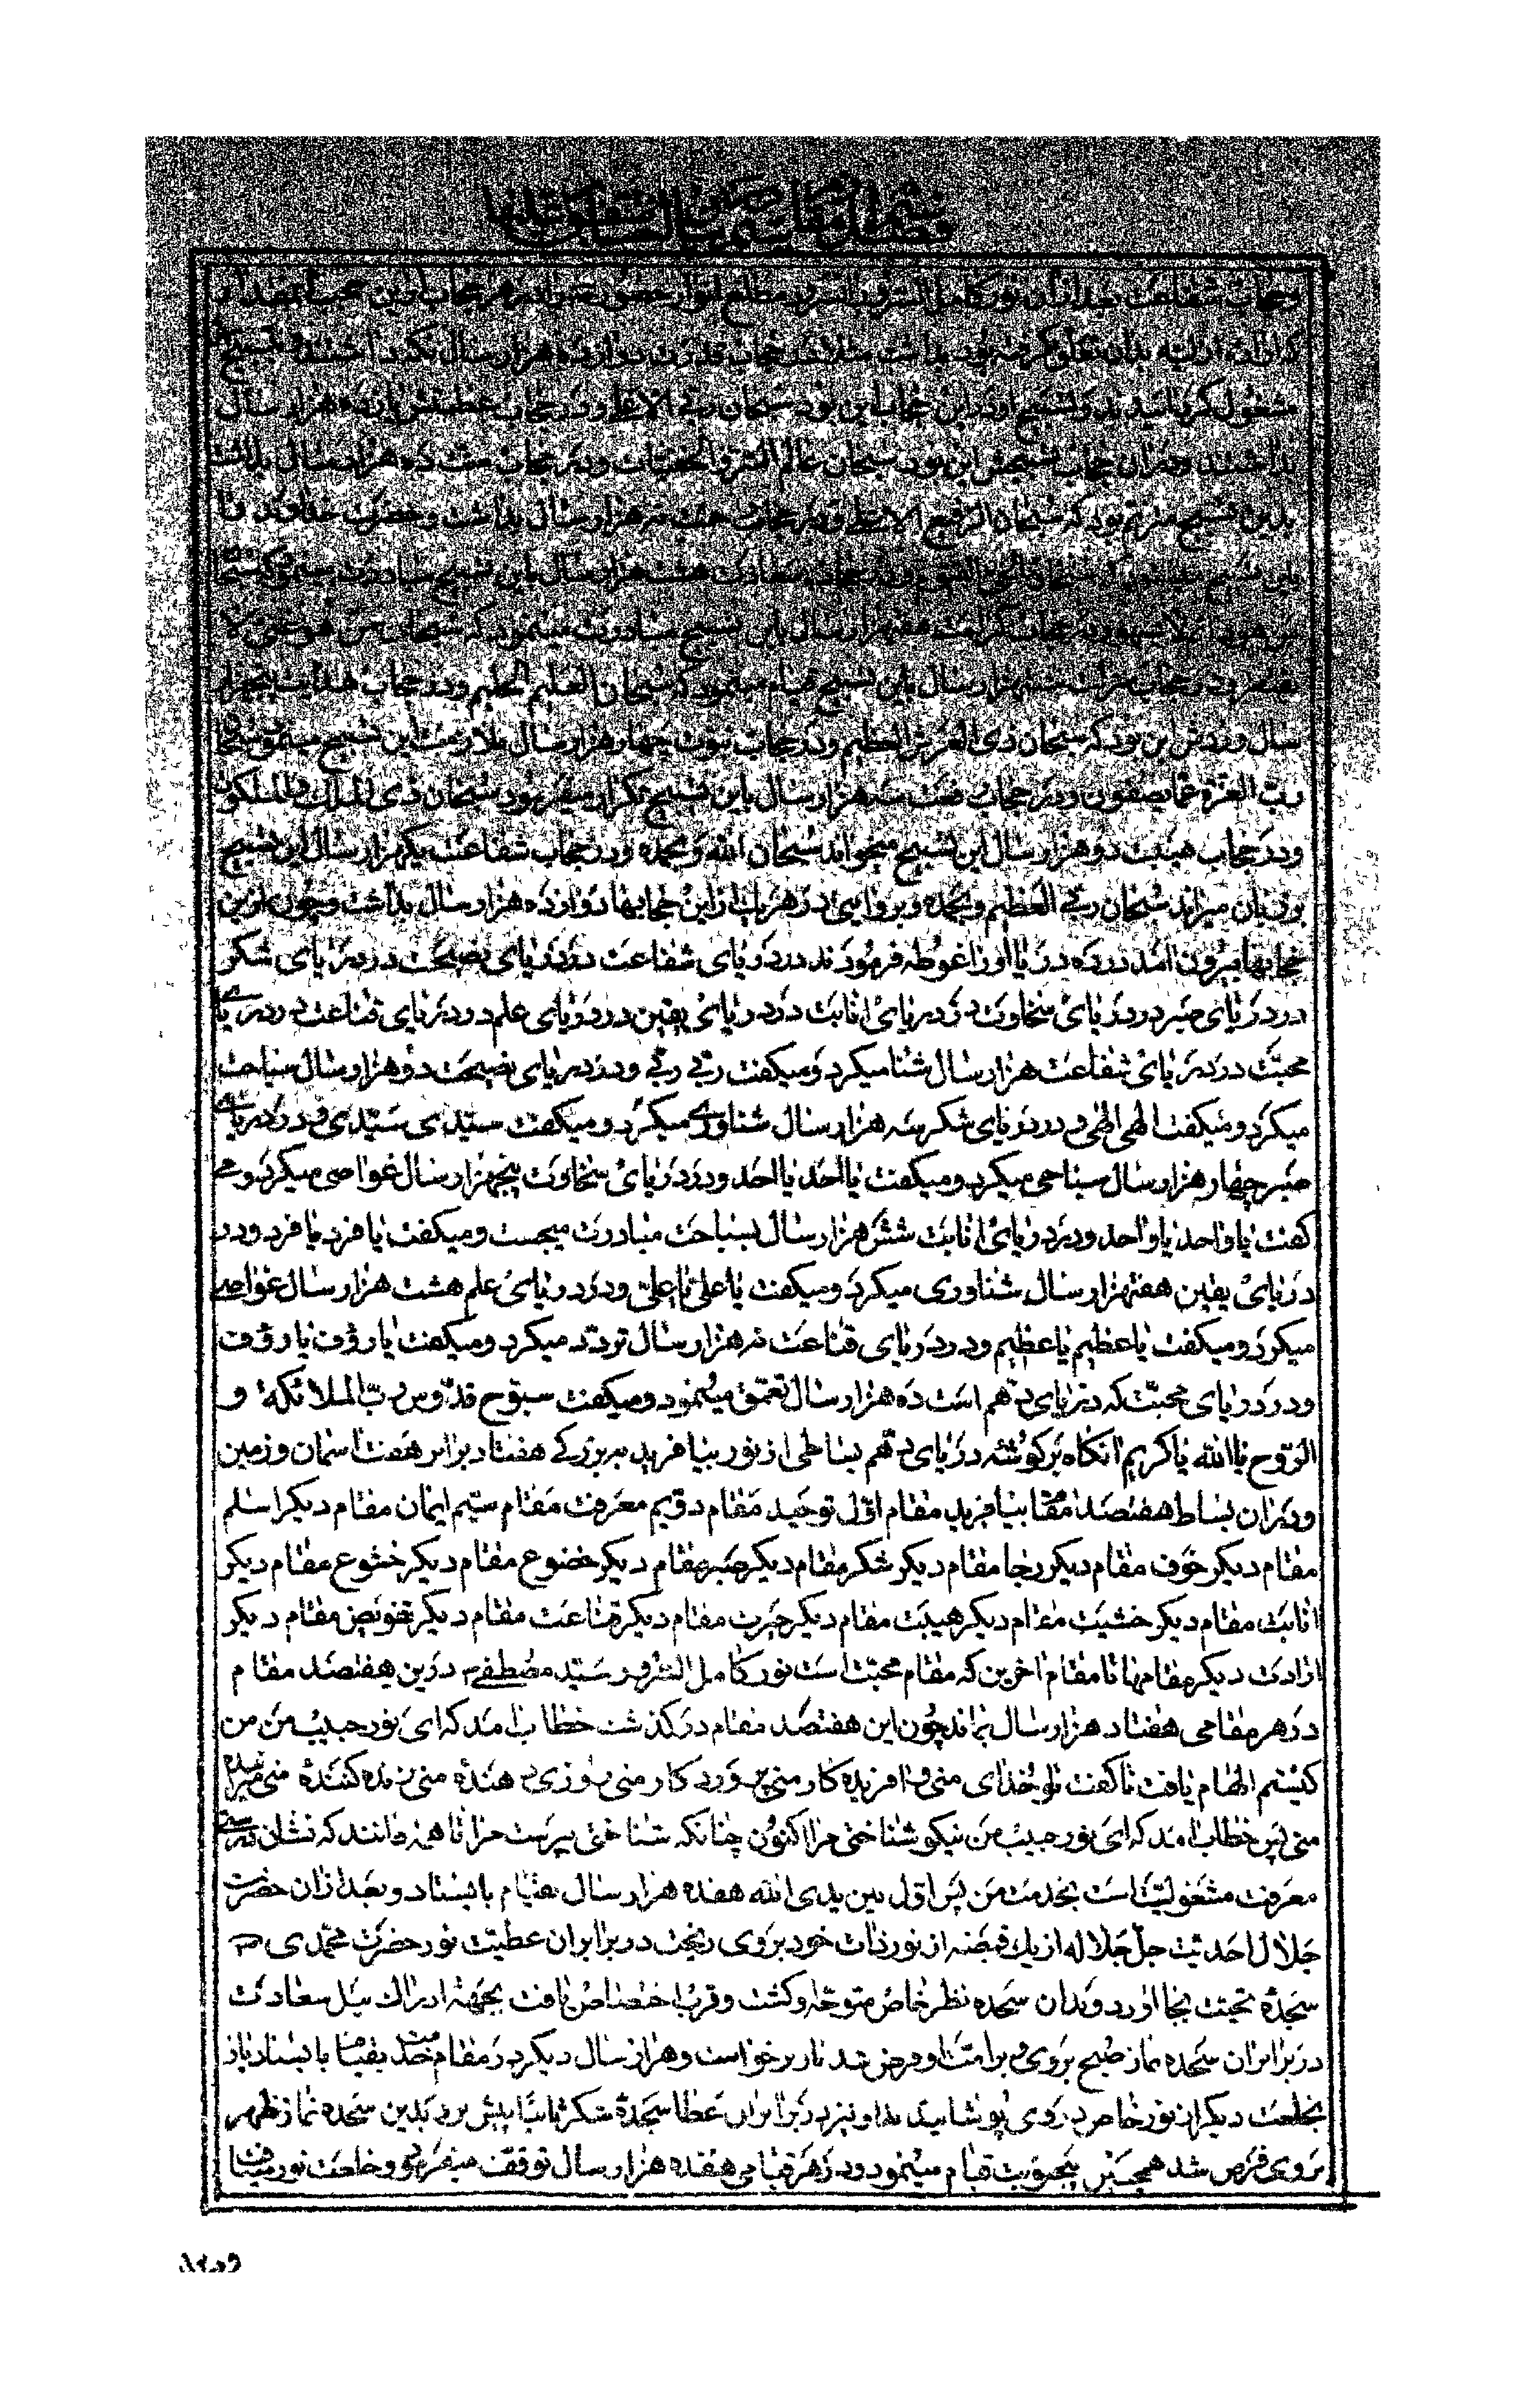 وحجاب شفاعت بعد ازان نور کامل السرور را در مطلع انوار حضور
مشغول کردانیدند و تسبیح او در این حجاب این بود سبحان ربی الاعلی و در حجاب عظمتش یازده هزار سال
بداشتند و در ان حجاب تسبیحش این بود سبحان عالم السر و الخفیات و در حجاب منت ده هزار سال بداشت
بدین تسبیح مترنم بود که سبحان الرفیع الاعلی و در حجاب رحمت نه هزار سال بداشت و حضرت خداوند را
باین تسبیح سبحان و در حجاب سعادت هشت هزار سال باین تسبیح مبادرت مینمود که سبحان
من هو و در حجاب کرامت هفتهزار سال باین تسبیح مبادرت مینمود که سبحان من هو غنی لا
یفتقر و در حجاب منزلت ششهزار سال باین تسبیح قیام مینمود که سبحان العلیم الحلیم و در حجاب هدایت پنجهزار
سال وردش این بود که سبحان ذی العرش العظیم و در حجاب نبوت چهار هزار سال ملازمت این تسبیح مینمود سبحان
رب العزة عما یصفون و در حجاب رفعت سه هزار سال باین تسبیح تکرار میفرمود سبحان ذی الملک والملکوت
ودر حجاب هیبت دو هزار سال این تسبیح میخواند سبحان الله و بحمده و در حجاب شفاعت یکهزار سال این تسبیح
بر زبان میراند سبحان ربی العظیم و بحمده و بروایتی در هر یک از این حجابها دوازده هزار سال بداشت و چون ازین
حجابها بیرون امد در ده دریا او را غوطه فرمودند در دریای شفاعت در دریای نصیحت در دریای شکر
در دریای صبر در دریای سخاوت در دریای انابت در دریای یقین در دریای علم در دریای قناعت در دریای
محبّت در دریای شفاعت هزار سال شنا میکرد و میکفت ربی ربی و در دریای نصیحت دو هزار سال سیاحت
میکرد و میکفت الهی الهی و در دریای شکر سه هزار سال شناوری میکرد و میکفت سیّدی سیّدی و در دریای
صبر چهار هزار سال سباحی میکرد و میکفت یا احد یا احد و در دریای سخاوت پنجهزار سال غواصی میکرد و می
کفت یا واحد یا واحد و در دریای انابت شش هزار سال بسباحت مبادرت میجست و میکفت یا فرد یا فرد و در
دریای یقین هفتهزار سال شناوری میکرد و میکفت یا علی یا علی و در دریای علم هشت هزار سال غواصی
میکرد و میکفت یا عظیم یا عظیم و در دریای قناعت نه هزار سال تردّد میکرد و میکفت یا رؤف یا رؤف
و در دریای محبّت که دریای دهم است ده هزار سال تعمّق مینمود و میکفت سبوح قدّوس ربّ الملائکة و
الرّوح یا الله یا کریم انکاه بر کوشه دریای دهم بساطی از نور بیافرید به بزرکی هفتاد برابر هفت اسمان و زمین
و در ان بساط هفتصد مقام بیافرید مقام اوّل توحید مقام دویم معرفت مقام سیّم ایمان مقام دیکر اسلم
مقام دیکر خوف مقام دیکر رجا مقام دیکر شکر مقام دیکر صبر مقام دیکر خضوع مقام دیکر خشوع مقام دیکر
انابت مقام دیکر خشیت مقام دیکر هیبت مقام دیکر حیرت مقام دیکر قناعت مقام دیکر تفویض مقام دیکر
ارادت دیکر مقامها تا مقام اخرین که مقام محبّت است نور کامل السّرور سیّد مصطفی م درین هفتصد مقام
در هر مقامی هفتاد هزار سال بماند چون این هفتصد مقام در کذشت خطاب امد که ای نور حبیب من من
کیستم الهام یافت تا کفت تو خدای منی و افریده کار منی پرورد کار منی روزی دهندهٔ منی زنده کنندهٔ منی میراننده
منی پس خطاب امد که ای نور حبیب من نیکو شناختی مرا اکنون چنانکه شناختی بپرست مرا تا همه دانند که نشان درستی
معرفت مشغولیّت است بخدمت من پس اول بین یدی الله هفده هزار سال بقیام بایستاد و بعد ازان حضرت
جلال احدیت جلّ جلاله از یک قبضه از نور ذات خود بر وی ریخت در برابر ان عطیت نور حضرت محمّدی ص
سجدهٔ تحیت بجا اورد و بدان سجده نظر خاص متوجّه او کشت و قرب اختصاص یافت بجهته ادراک نیل سعادت
در برابر ان سجده نماز صبح بر وی و بر امّت او فرض شد باز برخواست و هزار سال دیکر در مقام خدمت بقیام بایستاد باز
بخلعت دیکر از نور خاص بر وی پوشانیدند او نیز در برابر ان عطا سجدهٔ شکر ثنایا پیش برد بدین سجده نماز ظهر
بر وی فرض شد همچنین پنجنوبت قیام مینمود و در هر قیامی هفده هزار سال توقف میفرمود و خلعت نور مییافت